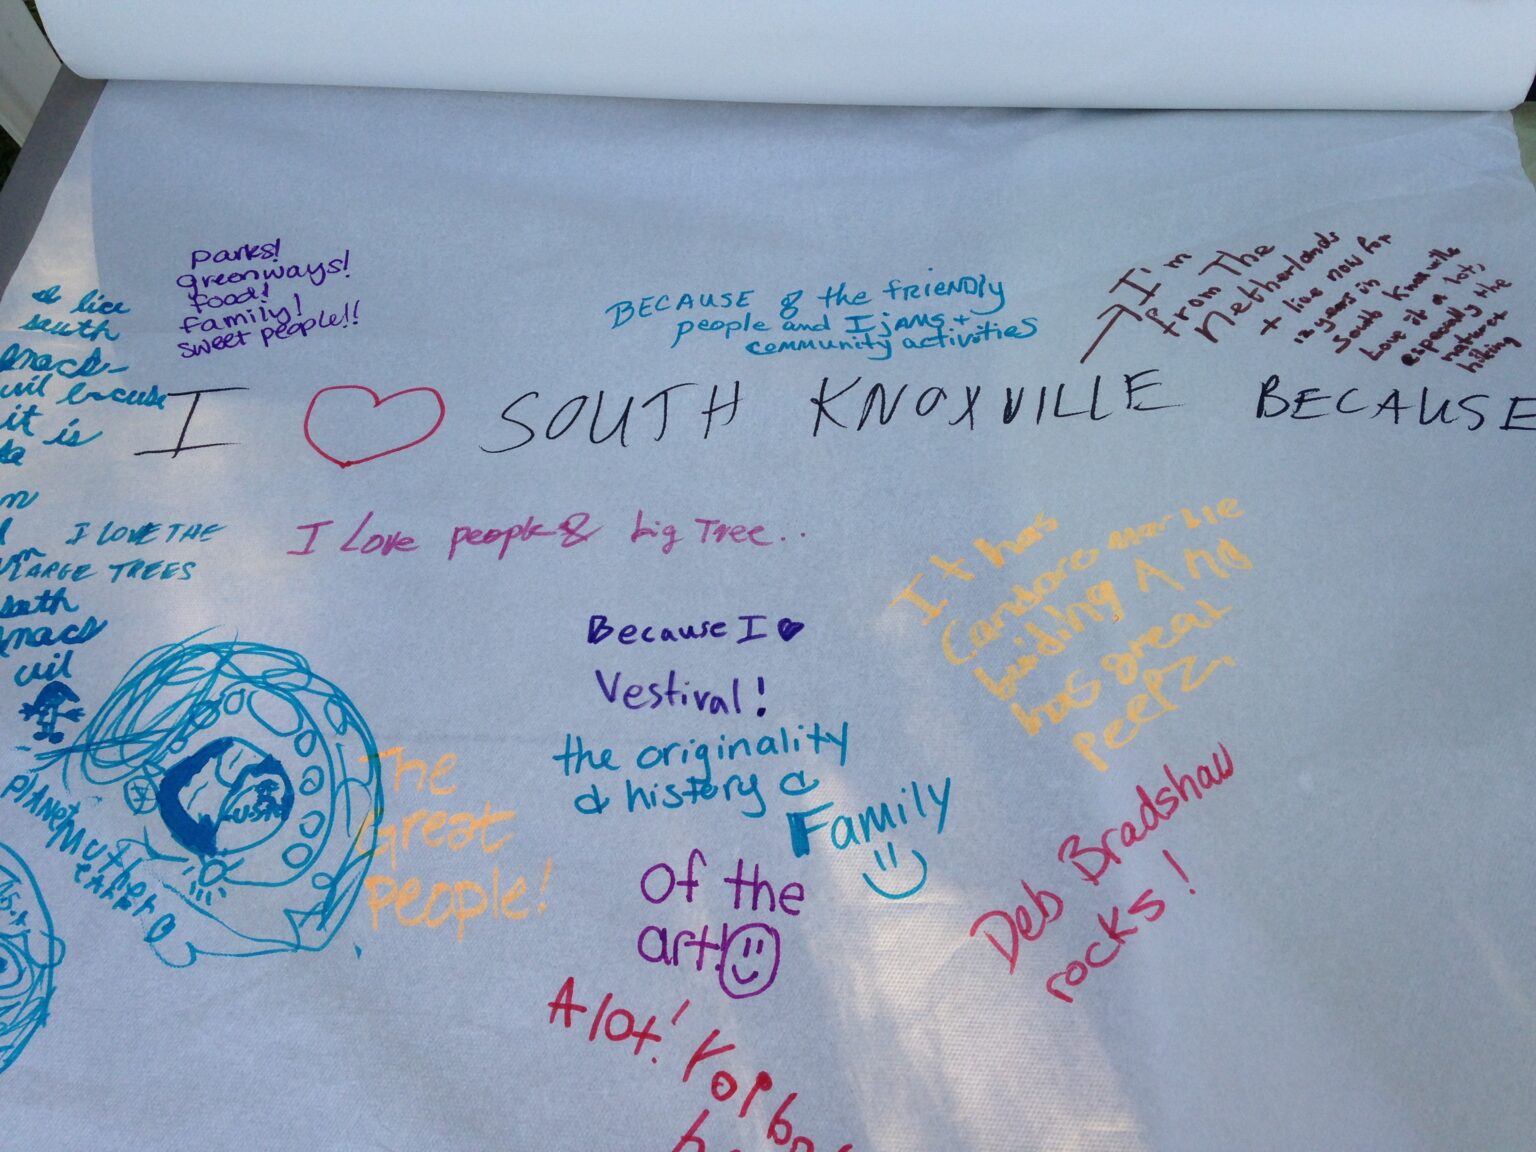 parks!
greenways!
food!
family!
sweet people!!
BECAUSE of the friendly
people and Ijams +
community activities
I'm
from The
Netherlands
+ live now for
12 years in
South Knoxville
Love it a lot,
especially the
nature +
hiking
I ♡ SOUTH KNOXVILLE BECAUSE
south
it is
I LOVE THE
LARGE TREES
I Love people & big Tree..
It has
Candoro marble
building And
has great
peepz
Because I ♥
Vestival!
the originality
& history &
Family
The
Great
People!
PlANET
MuTher
EARTH
USA
Of the
art!
Deb Bradshaw
rocks!
Alot!